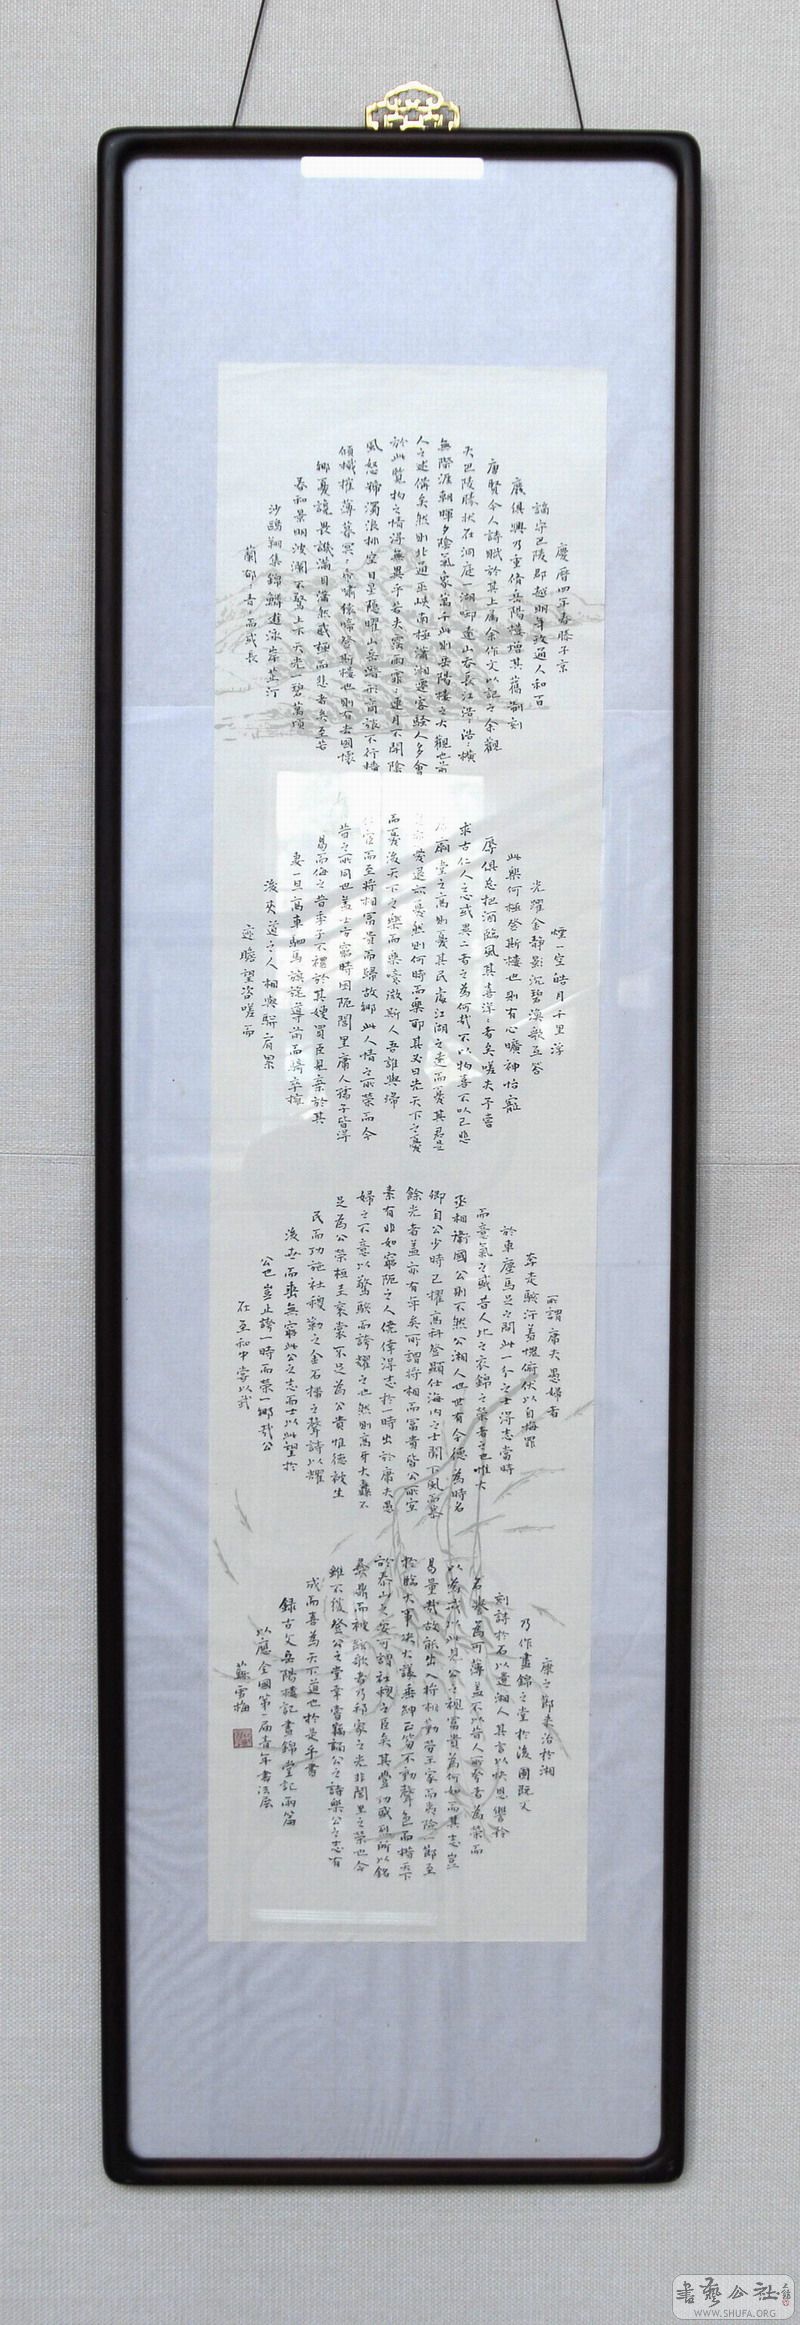 慶曆四年春滕子京
謫守巴陵郡越明年政通人和百
廢俱興乃重脩岳陽樓增其舊制刻
唐賢今人詩賦於其上属余作文以記之余觀
夫巴陵勝状在洞庭一湖啣遠山吞長江浩浩湯
無際涯朝暉夕陰氣象萬千此則岳陽樓之大觀也前
人之述備矣然則北通巫峽南極瀟湘遷客騷人多會
於此覽物之情得無異乎若夫霪雨霏霏連月不開陰
風怒號濁浪排空日星隱曜山岳潛形商旅不行檣
傾楫摧薄暮冥冥虎嘯猿啼登斯樓也則有去國懷
鄉憂讒畏譏滿目蕭然感極而悲者矣至若
春和景明波瀾不驚上下天光一碧萬頃
沙鷗翔集錦鱗遊泳岸芷汀
蘭郁青青而或長
煙一空皓月千里浮
光耀金靜影沉碧漁歌互答
此樂何極登斯樓也則有心曠神怡寵
辱俱忘把酒臨風其喜洋洋者矣嗟夫予嘗
求古仁人之心或異二者之為何哉不以物喜不以己悲
居廟堂之高則憂其民處江湖之遠而憂其君是
憂退亦憂然則何時而樂耶其必曰先天下之憂
而憂後天下之樂而樂噫微斯人吾誰與歸
仕宦而至将相富貴而歸故鄉此人情之所榮而今
昔之所同也盖士方窮時困阨閭里庸人孺子皆得
易而侮之昔季子不禮於其嫂買臣見棄於其
妻一旦高車駟馬旗旄導前而騎卒擁
後夾道之人相與駢肩累
迹瞻望咨嗟而
所謂庸夫愚婦者
奔走駭汗羞愧俯伏以自悔罪
於車塵馬足之間此一介之士得志當時
而意氣之盛昔人比之衣錦之榮者也惟大
丞相衛國公則不然公湘人也世有令德為時名
卿自公少時已擢高科登顯仕海内之士聞下風而慕
餘光者盖亦有年矣所謂将相而富貴皆公所宜
素有非如窮阨之人僥倖得志於一時出於庸夫愚
婦之不意以驚駭而誇耀之也然則高牙大纛不
足為公榮桓圭衮裳不足為公貴惟德被生
民而功施社稷勒之金石播之聲詩以耀
後世而垂無窮此公之志而士以此望於
公也豈止誇一時而榮一鄉哉公
在至和中嘗以武
康之節来治於湘
乃作晝錦之堂於後圃既又
刻詩於石以遺湘人其言以快恩讐矜
名譽為可薄盖不以昔人所夸者為榮而
以為戒於此見公之視富貴為何如而其志豈
易量哉故能出入将相勤勞王家而夷險一節至
於臨大事决大議垂紳正笏不動聲色而措天下
於泰山之安可謂社稷之臣矣其豐功盛烈所以銘
彝鼎而被絃歌者乃邦家之光非閭里之榮也余
雖不獲登公之堂幸嘗竊誦公之詩樂公之志有
成而喜為天下道也於是乎書
録古文岳陽樓記晝錦堂記兩篇
以應全國第一届青年書法展
蘇雪梅
書藝公社
WWW.SHUFA.ORG